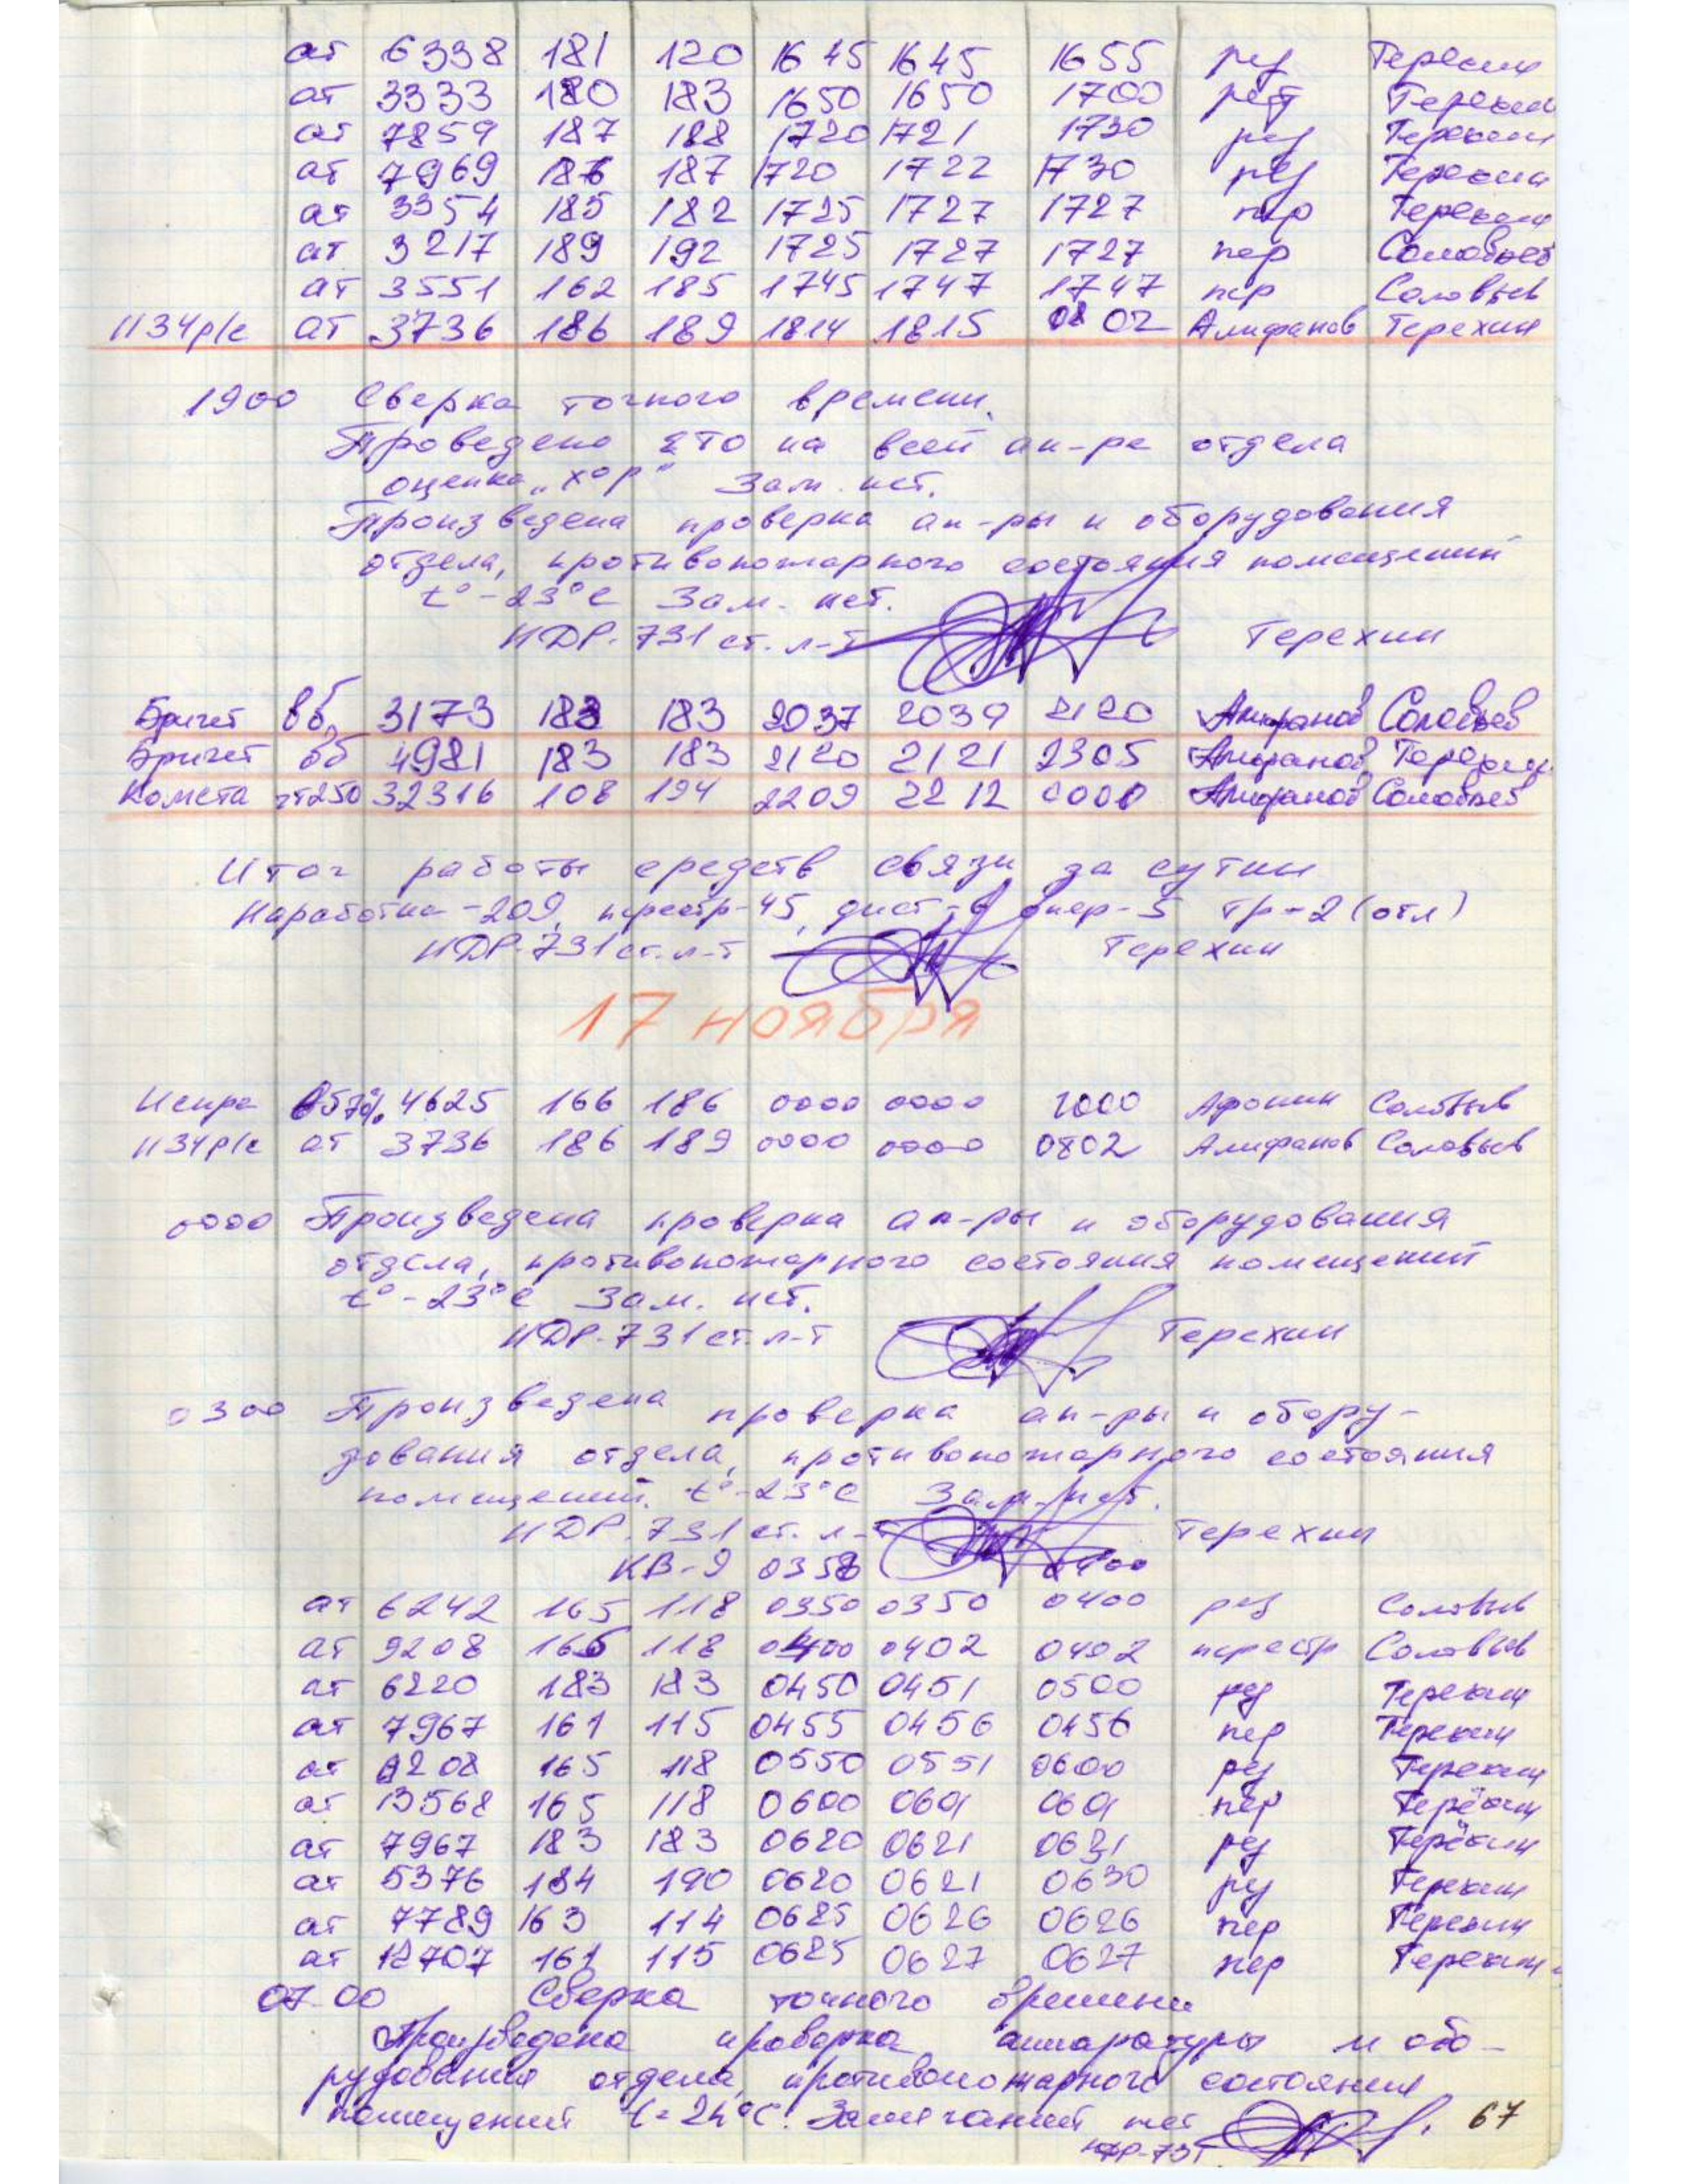 ат 6338 181 120 1645 1645 1655 рез Терехин
ат 3333 180 183 1650 1650 1700 рез Терехин
ат 7859 187 188 1720 1721 1730 рез Терехин
ат 7969 186 187 1720 1722 1730 рез Терехин
ат 3354 185 182 1725 1727 1727 пер Терехин
ат 3217 189 192 1725 1727 1727 пер Соловьев
ат 3551 162 185 1745 1747 1747 пер Соловьев
1134р/с ат 3736 186 189 1814 1815 0802 Алифанов Терехин
1900 Сверка точного времени.
Проведено ЕТО на всей ап-ре отдела
оценка „хор" Зам. нет.
Произведена проверка ап-ры и оборудования
отдела, противопожарного состояния помещений
t°-23°C Зам. нет.
НДР-731 ст. л-т Терехин
Бригет вб 3173 183 183 2037 2039 2120 Алифанов Соловьев
Бригет вб 4981 183 183 2120 2121 2305 Алифанов Терехин
Комета чт250 32316 108 194 2209 2212 0000 Алифанов Соловьев
Итог работы средств связи за сутки
Наработка-209, перестр-45, дист-6 опер-5 тр-2 (отл)
НДР-731 ст. л-т Терехин
17 ноября
Искра 4625 166 186 0000 0000 1000 Афонин Соловьев
1134р/с ат 3736 186 189 0000 0000 0802 Алифанов Соловьев
0000 Произведена проверка ап-ры и оборудования
отдела, противопожарного состояния помещений
t°-23°C Зам. нет.
НДР-731 ст. л-т Терехин
0300 Произведена проверка ап-ры и обору-
дования отдела, противопожарного состояния
помещений. t°-23°C Зам. нет.
НДР-731 ст. л-т Терехин
КВ-9 0358 0400
ат 6242 165 118 0350 0350 0400 рез Соловьев
ат 9208 165 118 0400 0402 0402 перестр Соловьев
ат 6220 183 183 0450 0451 0500 рез Терехин
ат 7967 161 115 0455 0456 0456 пер Терехин
ат 9208 165 118 0550 0551 0600 рез Терехин
ат 13568 165 118 0600 0601 0601 пер Терёхин
ат 7967 183 183 0620 0621 0631 рез Терёхин
ат 5376 184 190 0620 0621 0630 рез Терехин
ат 7789 163 114 0625 0626 0626 пер Терехин
ат 12707 161 115 0625 0627 0627 пер Терехин
07.00 Сверка точного времени
Произведена проверка аппаратуры и обо-
рудования отдела, противопожарного состояния
помещений t=24°C. Замечаний нет
НДР-731
67